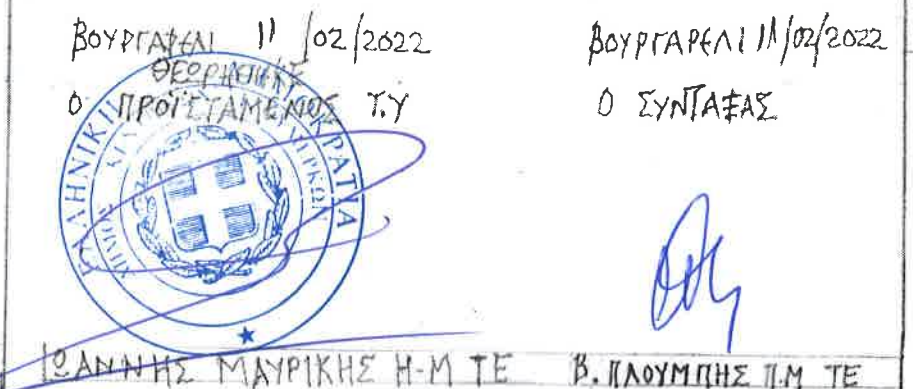 ΒΟΥΡΓΑΡΕΛΙ 11/02/2022
ΘΕΩΡΗΘΗΚΕ
Ο ΠΡΟΪΣΤΑΜΕΝΟΣ Τ.Υ
ΕΛΛΗΝΙΚΗ ΔΗΜΟΚΡΑΤΙΑ
ΙΩΑΝΝΗΣ ΜΑΥΡΙΚΗΣ Η-Μ ΤΕ
ΒΟΥΡΓΑΡΕΛΙ 11/02/2022
Ο ΣΥΝΤΑΞΑΣ
Β. ΠΛΟΥΜΠΗΣ Π.Μ ΤΕ